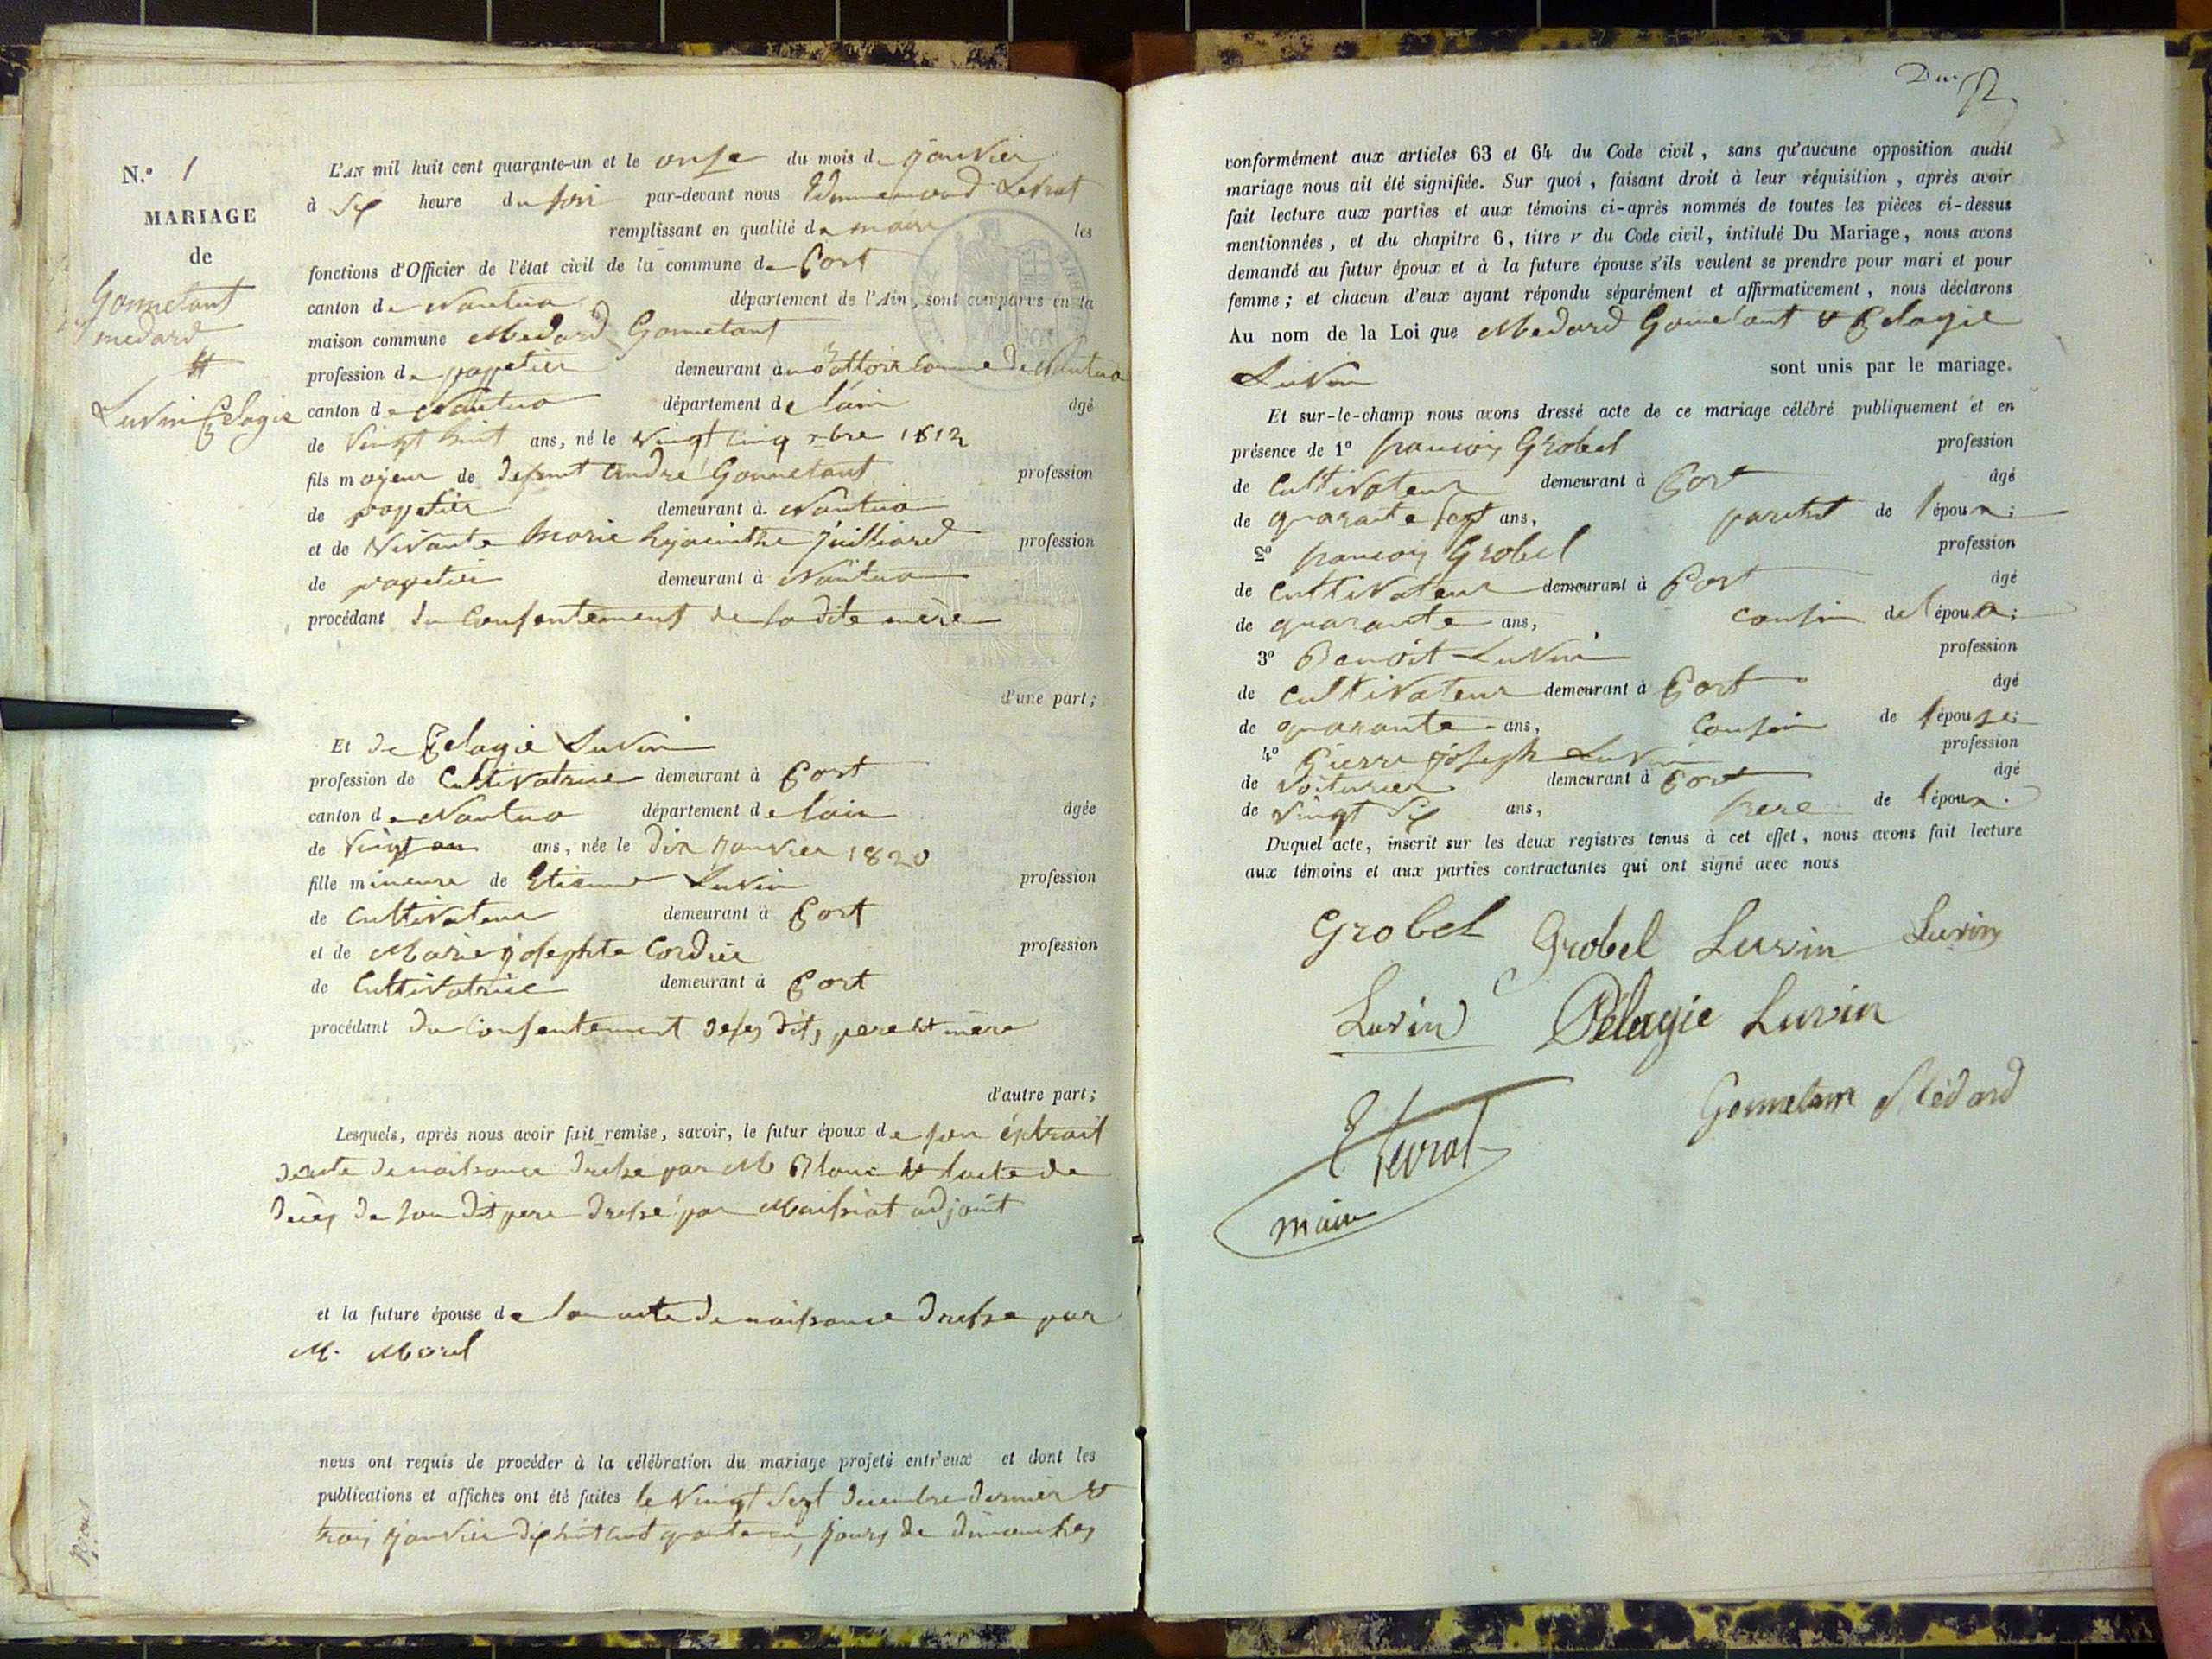 N.º 1
MARIAGE
de
Gonnetant
medard
et
Luvin Pelagie
L'AN mil huit cent quarante-un et le onze du mois de janvier
à six heure du soir par-devant nous Levrat
remplissant en qualité de maire les
fonctions d'Officier de l'état civil de la commune de Port
canton de Nantua département de l'Ain, sont comparus en la
maison commune Medard Gonnetant
profession de papetier demeurant au Battoir Comune de Nantua
canton de Nantua département de lain âgé
de vingt huit ans, né le vingt cinq xbre 1812
fils majeur de defunt andré Gonnetant profession
de papetier demeurant à Nantua
et de vivante Marie hyacinthe juilliard profession
de papetier demeurant à Nantua
procédant du Consentement de sa dite mère
d'une part;
Et de Pelagie Luvin
profession de Cultivatrice demeurant à Port
canton de Nantua département de lain âgée
de vingt an ans, née le dix janvier 1820
fille mineure de Etienne Luvin profession
de Cultivateur demeurant à Port
et de Marie josephte Cordier profession
de Cultivatrice demeurant à Port
procédant du Consentement de ses dits pere et mère
d'autre part;
Lesquels, après nous avoir fait remise, savoir, le futur époux de son extrait
dacte de naissance dressé par M Blanc et lacte de
décès de son dit pere dressé par Maissiat adjoint
et la future épouse de son acte de naissance dressé par
M. Morel
nous ont requis de procéder à la célébration du mariage projeté entr'eux et dont les
publications et affiches ont été faites le vingt sept decembre dernier et
trois janvier dix huit cent quarante un, jours de dimanches
conformément aux articles 63 et 64 du Code civil, sans qu'aucune opposition audit
mariage nous ait été signifiée. Sur quoi, faisant droit à leur réquisition, après avoir
fait lecture aux parties et aux témoins ci-après nommés de toutes les pièces ci-dessus
mentionnées, et du chapitre 6, titre v du Code civil, intitulé Du Mariage, nous avons
demandé au futur époux et à la future épouse s'ils veulent se prendre pour mari et pour
femme; et chacun d'eux ayant répondu séparément et affirmativement, nous déclarons
Au nom de la Loi que Medard Gonnetant & Pelagie
Luvin sont unis par le mariage.
Et sur-le-champ nous avons dressé acte de ce mariage célébré publiquement et en
présence de 1º francois Grobel profession
de Cultivateur demeurant à Port âgé
de quarante sept ans, de l épou
2º francois Grobel profession
de Cultivateur demeurant à Port âgé
de quarante ans, cousin de l épou
3º Benoit Luvin profession
de Cultivateur demeurant à Port âgé
de quarante ans, Cousin de l épouse;
4º Pierre joseph Luvin profession
de voiturier demeurant à Port âgé
de vingt six ans, frere de l épou
Duquel acte, inscrit sur les deux registres tenus à cet effet, nous avons fait lecture
aux témoins et aux parties contractantes qui ont signé avec nous
Grobel Grobel Luvin Luvin
Luvin Pélagie Luvin
Gonnetant Médard
E Levrat
maire